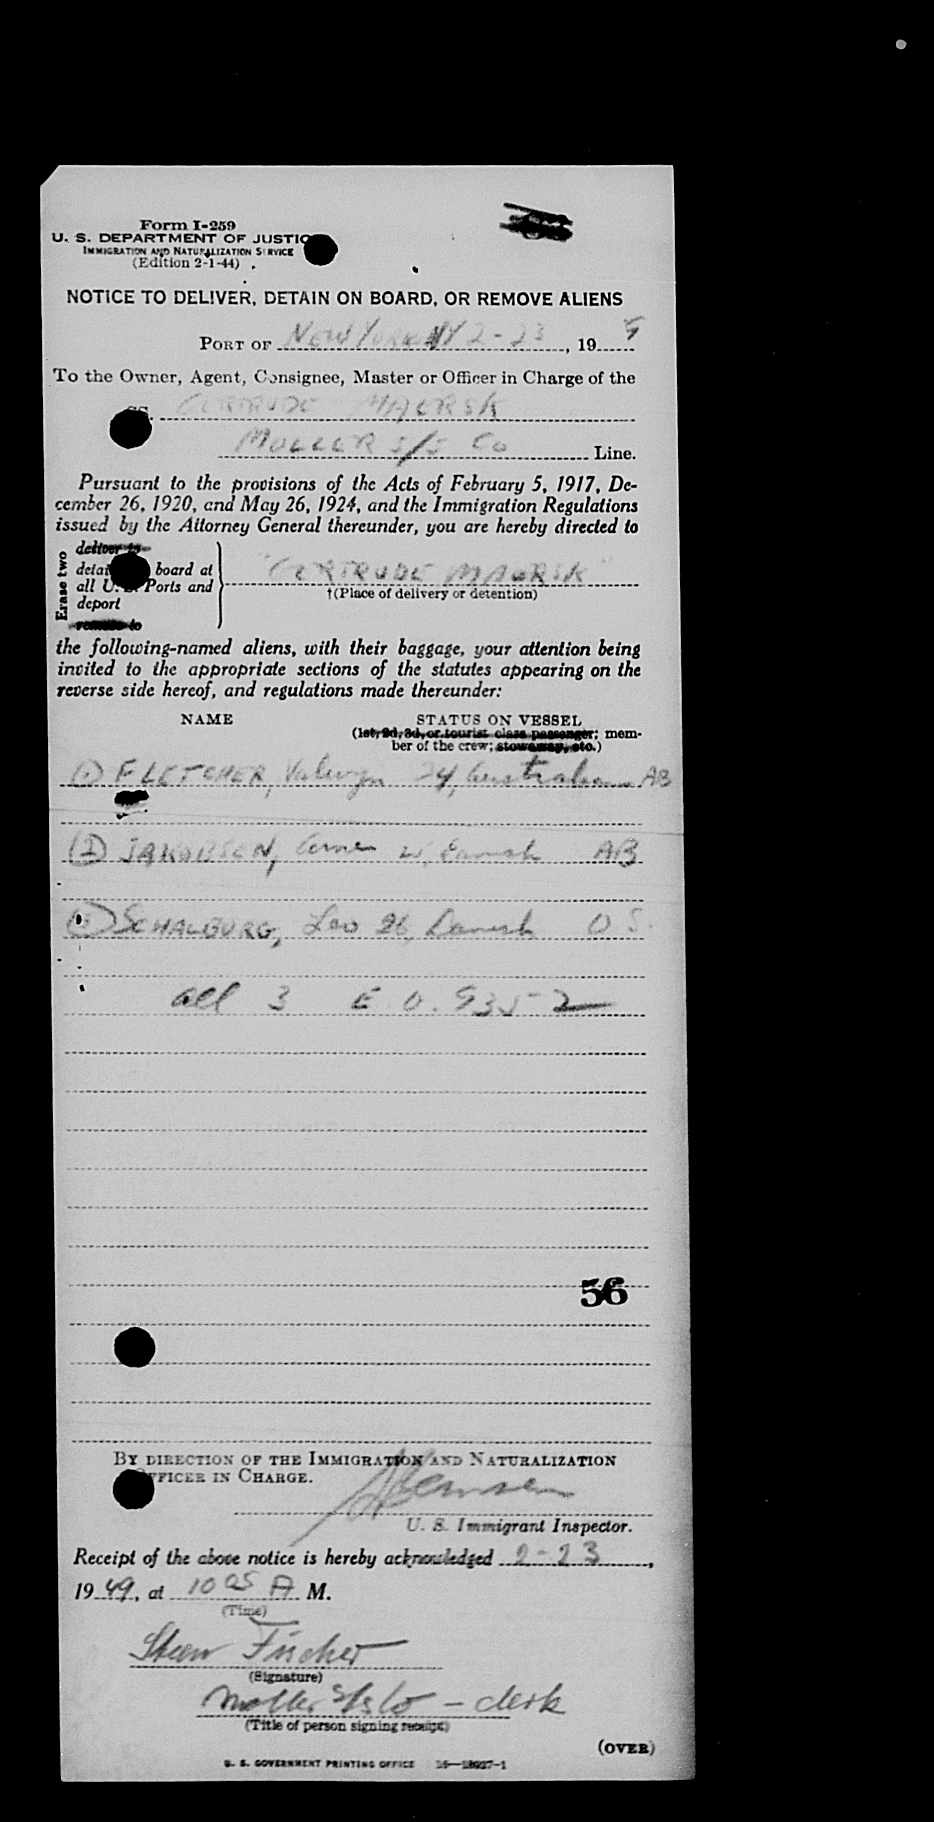 Form I-259
U. S. DEPARTMENT OF JUSTIC
IMMIGRATION AND NATURALIZATION SERVICE
(Edition 2-1-44)
NOTICE TO DELIVER, DETAIN ON BOARD, OR REMOVE ALIENS
PORT OF NEW YORK NY 2-23, 19
To the Owner, Agent, Consignee, Master or Officer in Charge of the
SS. GERTRUDE MAERSK
MOLLER S/S Co Line.
Pursuant to the provisions of the Acts of February 5, 1917, De-
cember 26, 1920, and May 26, 1924, and the Immigration Regulations
issued by the Attorney General thereunder, you are hereby directed to
Erase two
deliver to
detai board at
all U. S. Ports and
deport
remove to
"GERTRUDE MAERSK"
†(Place of delivery or detention)
the following-named aliens, with their baggage, your attention being
invited to the appropriate sections of the statutes appearing on the
reverse side hereof, and regulations made thereunder:
NAME STATUS ON VESSEL
(1st, 2d, 3d, or tourist class passenger; mem-
ber of the crew; stowaway, etc.)
(1) FLETCHER, 24, Australian AB
(2) JAKOBSEN, Arne Danish AB
(3) SCHALBURG, Leo 26, Danish O S.
all 3 E O. 9352
56
BY DIRECTION OF THE IMMIGRATION AND NATURALIZATION
OFFICER IN CHARGE.
U. S. Immigrant Inspector.
Receipt of the above notice is hereby acknowledged 2-23,
1949, at 10 05 A M.
(Time)
Steen Fischer
(Signature)
Moller S/S Co - clerk
(Title of person signing receipt)
(OVER)
U. S. GOVERNMENT PRINTING OFFICE 16—18927-1